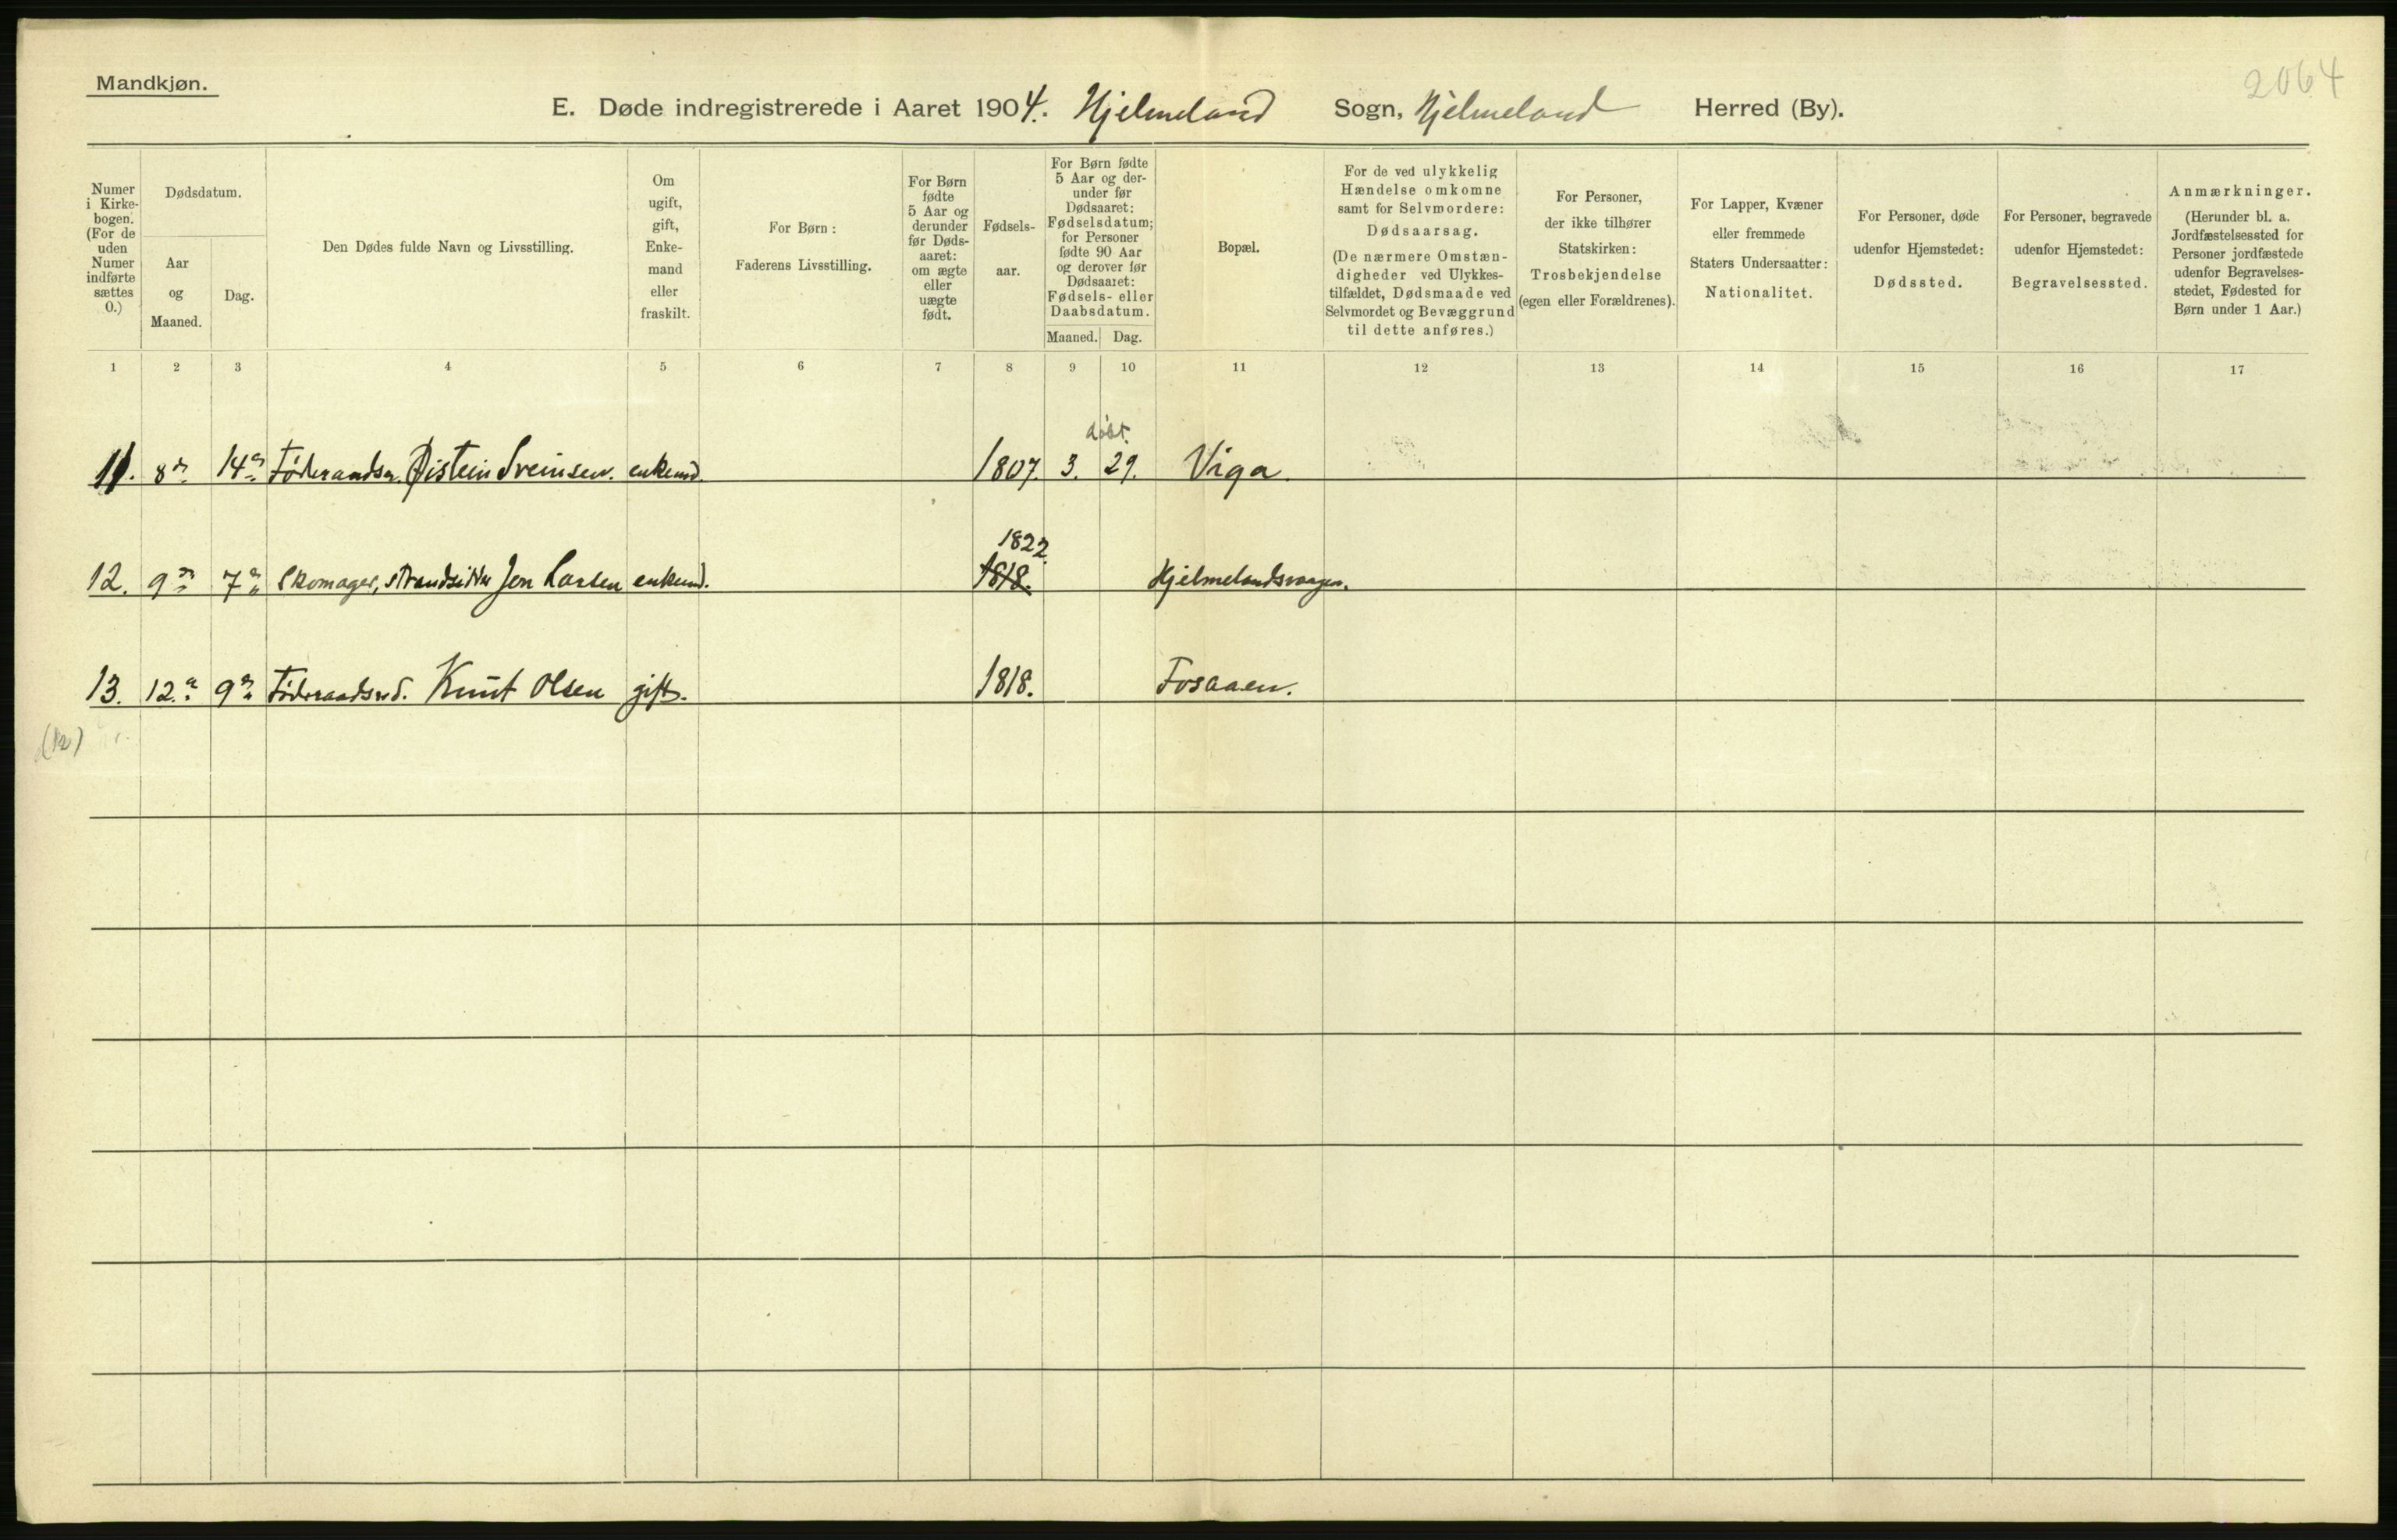 Mandkjøn.
2064
E. Døde indregistrerede i Aaret 1904. Hjelmeland Sogn, Hjelmeland Herred (By).
Numer i Kirkebogen. (For de uden Numer indførte sættes 0.)
Dødsdatum.
Aar og Maaned.
Dag.
Den Dødes fulde Navn og Livsstilling.
Om ugift, gift, Enkemand eller fraskilt.
For Børn: Faderens Livsstilling.
For Børn fødte 5 Aar og derunder før Dødsaaret: om ægte eller uægte født.
Fødselsaar.
For Børn fødte 5 Aar og derunder før Dødsaaret: Fødselsdatum; for Personer fødte 90 Aar og derover før Dødsaaret: Fødsels- eller Daabsdatum.
Maaned. Dag.
Bopæl.
For de ved ulykkelig Hændelse omkomne samt for Selvmordere: Dødsaarsag. (De nærmere Omstændigheder ved Ulykkestilfældet, Dødsmaade ved Selvmordet og Bevæggrund til dette anføres.)
For Personer, der ikke tilhører Statskirken: Trosbekjendelse (egen eller Forældrenes).
For Lapper, Kvæner eller fremmede Staters Undersaatter: Nationalitet.
For Personer, døde udenfor Hjemstedet: Dødssted.
For Personer, begravede udenfor Hjemstedet: Begravelsessted.
Anmærkninger. (Herunder bl. a. Jordfæstelsessted for Personer jordfæstede udenfor Begravelsesstedet, Fødested for Børn under 1 Aar.)
1 2 3 4 5 6 7 8 9 10 11 12 13 14 15 16 17
døbt.
11. 8de 14de Føderaadsm. Østein Sveinsen. enkemd. 1807. 3. 29. Viga.
1822
12. 9de 7de Skomager, strandsidder Jon Larsen enkemd. 1818. Hjelmelandsvaagen.
13. 12te 9de Føderaadsmd. Knut Olsen gift. 1818. Fosaaen.
(12)